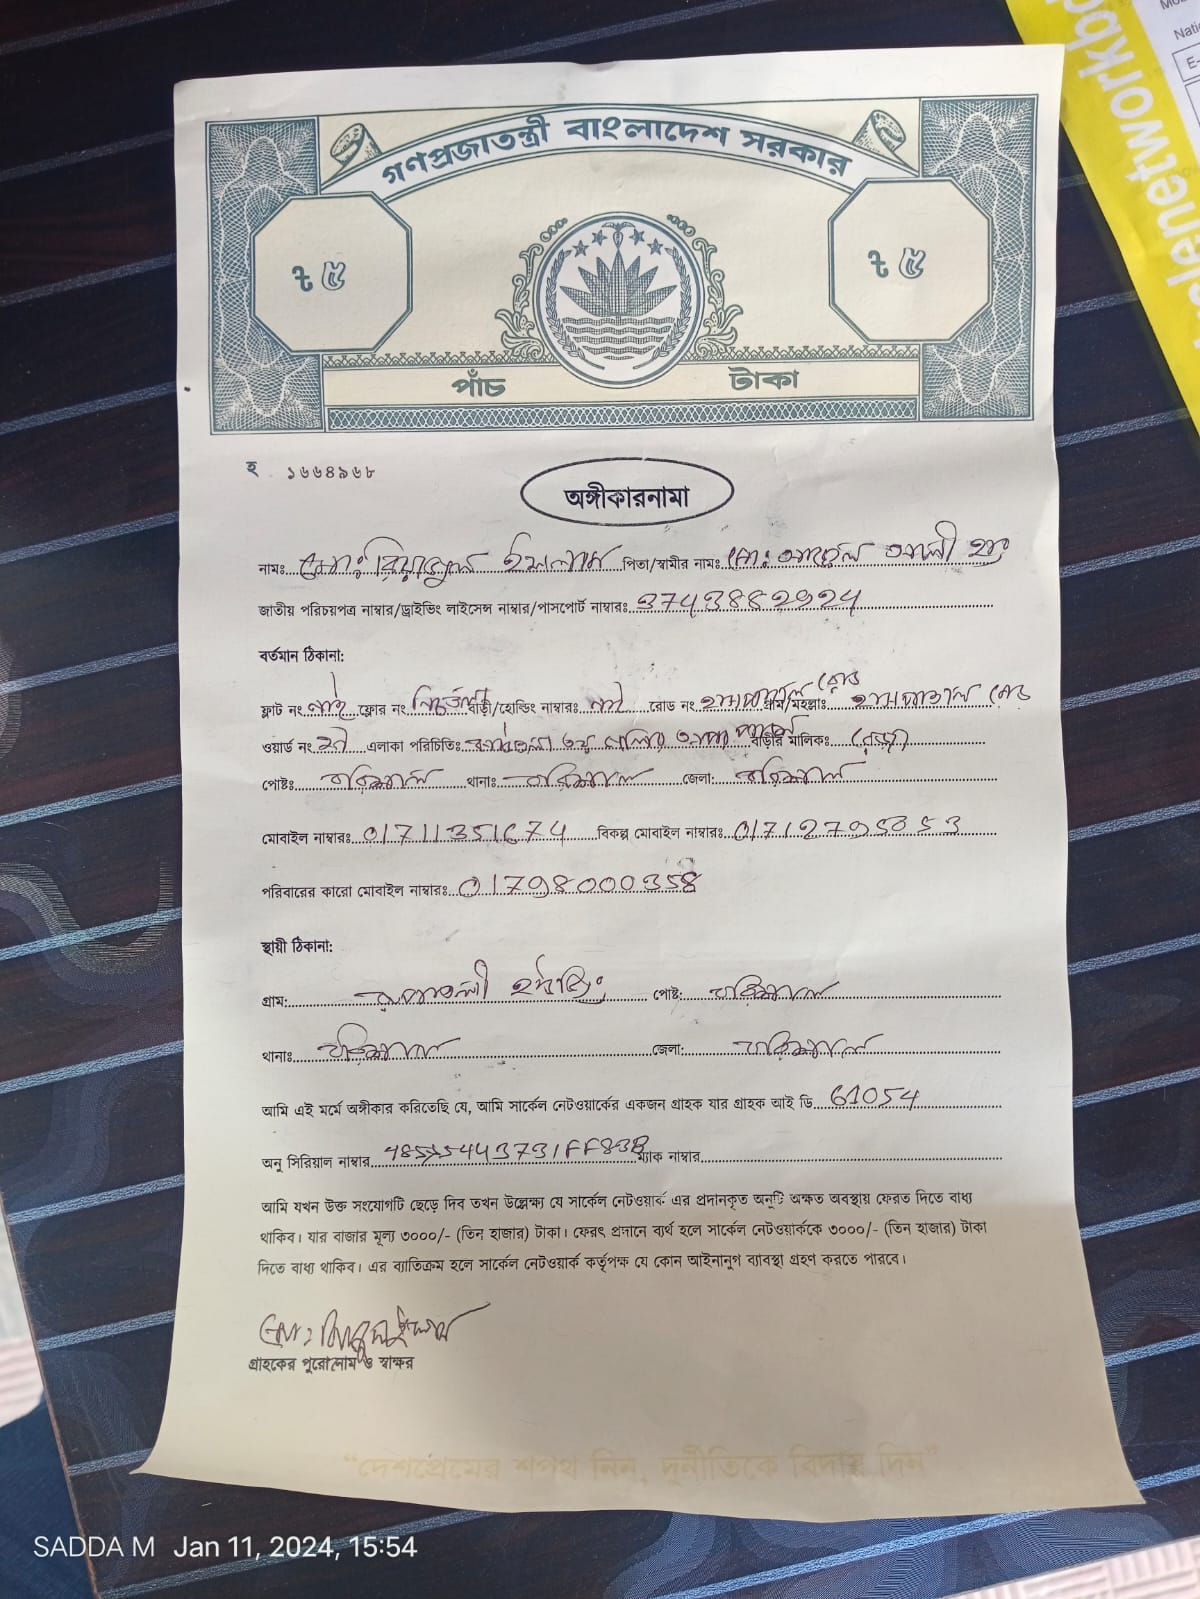 গণপ্রজাতন্ত্রী বাংলাদেশ সরকার
৳ ৫
৳ ৫
পাঁচ টাকা
হ ১৬৬৪৯৬৮
অঙ্গীকারনামা
নামঃ মোঃ রিয়াজুল ইসলাম পিতা/স্বামীর নামঃ মোঃ আলী
জাতীয় পরিচয়পত্র নাম্বার/ড্রাইভিং লাইসেন্স নাম্বার/পাসপোর্ট নাম্বারঃ 3743882924
বর্তমান ঠিকানা:
ফ্লাট নং নাই ফ্লোর নং নিচতলা বাড়ী/হোল্ডিং নাম্বারঃ নাই রোড নং হাসপাতাল রোড গ্রাম/মহল্লাঃ হাসপাতাল রোড
ওয়ার্ড নং এলাকা পরিচিতিঃ বাড়ীর মালিকঃ
পোষ্টঃ বরিশাল থানাঃ বরিশাল জেলা: বরিশাল
মোবাইল নাম্বারঃ 01711351674 বিকল্প মোবাইল নাম্বারঃ
পরিবারের কারো মোবাইল নাম্বারঃ 01798000358
স্থায়ী ঠিকানা:
গ্রাম: পোষ্ট: বরিশাল
থানাঃ বরিশাল জেলা: বরিশাল
আমি এই মর্মে অঙ্গীকার করিতেছি যে, আমি সার্কেল নেটওয়ার্কের একজন গ্রাহক যার গ্রাহক আই ডি 61054
অনু সিরিয়াল নাম্বার ম্যাক নাম্বার
আমি যখন উক্ত সংযোগটি ছেড়ে দিব তখন উল্লেক্ষ্য যে সার্কেল নেটওয়ার্ক এর প্রদানকৃত অনুটি অক্ষত অবস্থায় ফেরত দিতে বাধ্য
থাকিব। যার বাজার মূল্য ৩০০০/- (তিন হাজার) টাকা। ফেরৎ প্রদানে ব্যর্থ হলে সার্কেল নেটওয়ার্ককে ৩০০০/- (তিন হাজার) টাকা
দিতে বাধ্য থাকিব। এর ব্যতিক্রম হলে সার্কেল নেটওয়ার্ক কর্তৃপক্ষ যে কোন আইনানুগ ব্যাবস্থা গ্রহণ করতে পারবে।
গ্রাহকের পুরোনাম ও স্বাক্ষর
“দেশপ্রেমের শপথ নিন, দুর্নীতিকে বিদায় দিন”
SADDA M Jan 11, 2024, 15:54